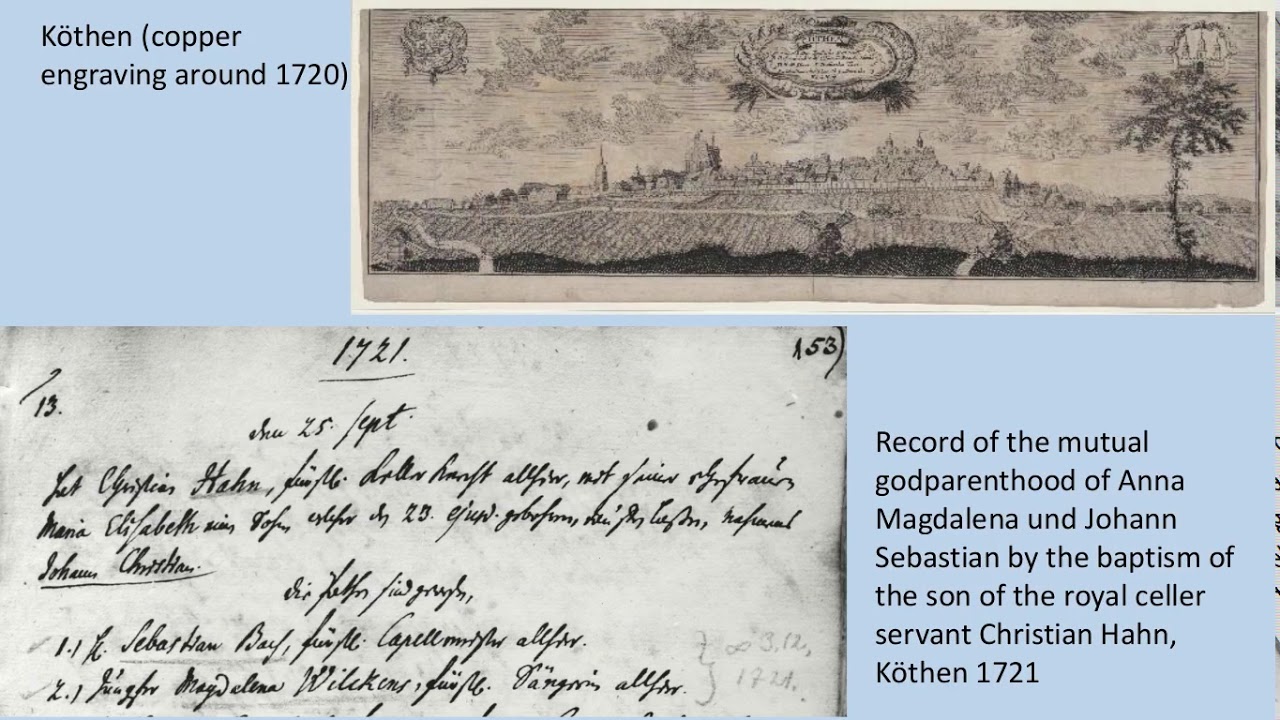 Köthen (copper
engraving around 1720)
1721.
153)
13.
den 25. Sept.
hat Christian Hahn, fürstl. Keller Knecht allhier, mit seiner Ehefrauen
Maria Elisabeth einen Sohn welcher den 23. ejusd. gebohren, tauffen laßen, nahmens
Johann Christian.
die Pathen sind gewesen,
1.) H. Sebastian Bach, fürstl. Capellmeister allhier.
2.) Jungfer Magdalena Wilckens, fürstl. Sängerin allhier.
∞ 3.12.
1721.
Record of the mutual
godparenthood of Anna
Magdalena und Johann
Sebastian by the baptism of
the son of the royal celler
servant Christian Hahn,
Köthen 1721